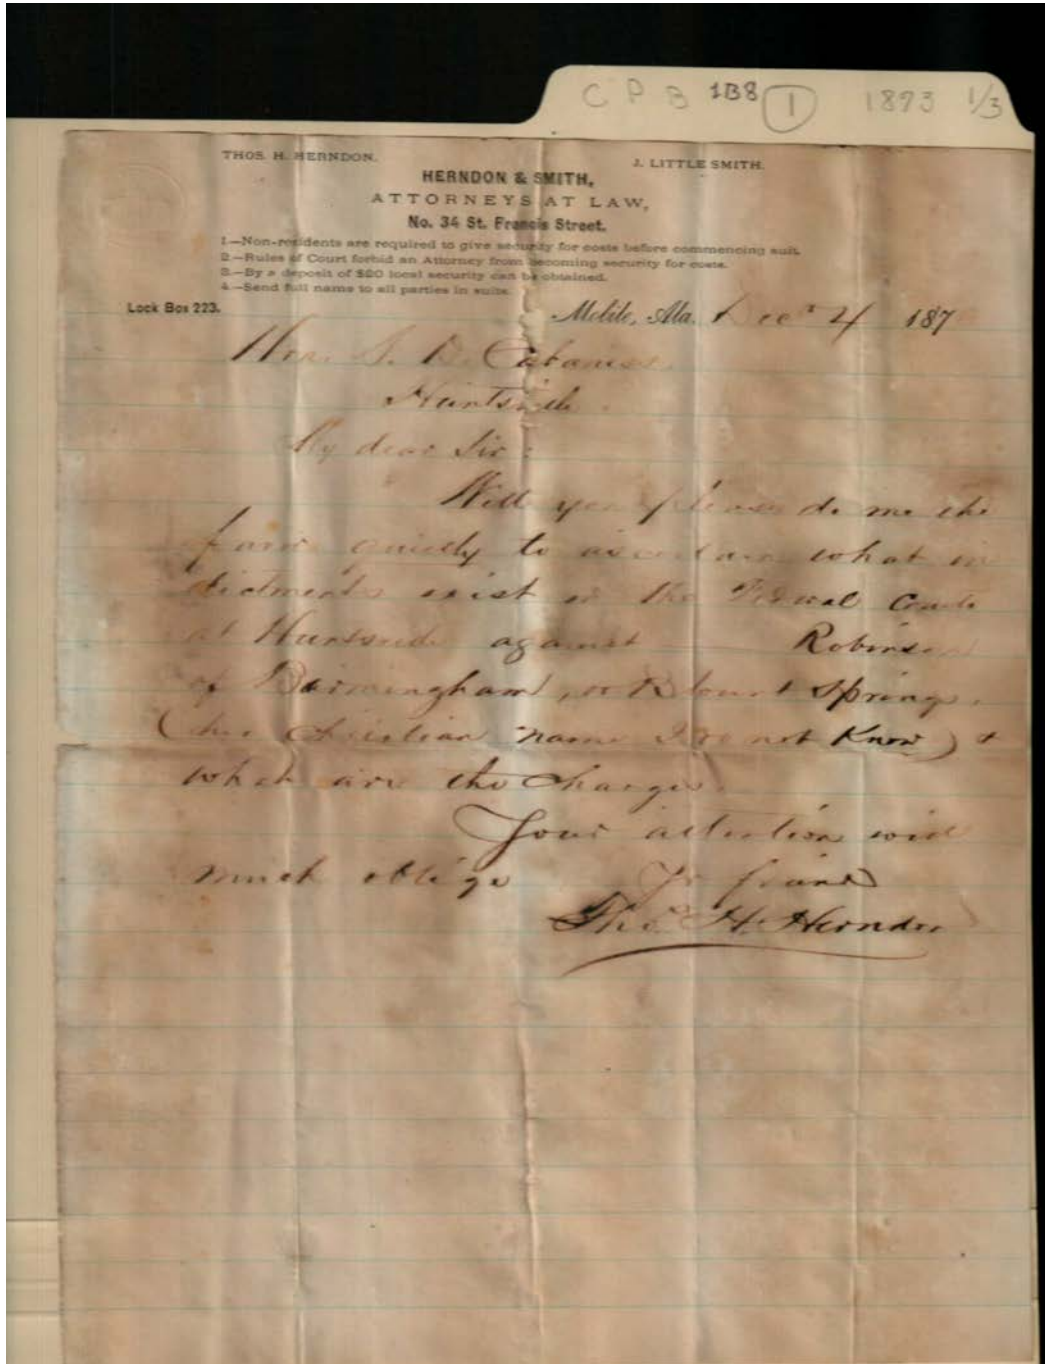 C P B 1B8 1 1873 1/3
THOS. H. HERNDON. J. LITTLE SMITH.
HERNDON & SMITH,
ATTORNEYS AT LAW,
No. 34 St. Francis Street.
1.—Non-residents are required to give security for costs before commencing suit.
2.—Rules of Court forbid an Attorney from becoming security for costs.
3.—By a deposit of $20 local security can be obtained.
4.—Send full name to all parties in suits.
Lock Box 223. Mobile, Ala. Dec 4 187
Hon. S. D. Cabaniss
Huntsville
My dear Sir:
Will you please do me the
favor quietly to ascertain what in
dictments exist in the Federal Courts
at Huntsville against Robinson
of Birmingham, or Blount Springs.
(his Christian name I do not know) &
what are the charges.
Your attention will
much oblige Yr friend
Tho. H. Herndon